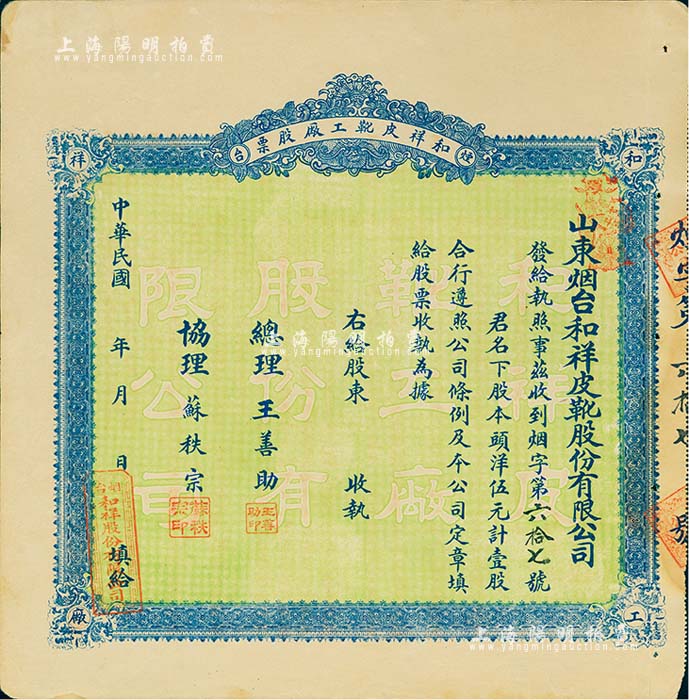 上海陽明拍賣
www.yangmingauction.com
煙台和祥皮靴工廠股票
和
祥
工
廠
山東烟台和祥皮靴股份有限公司
發給執照事茲收到烟字第六拾七號
君名下股本頭洋伍元計壹股
合行遵照公司條例及本公司定章填
給股票收執為據
右給股東 收執
總理 王善助
王善助印
協理 蘇秩宗
蘇秩宗印
中華民國 年 月 日 填給
烟台和祥股份有限公司
和祥皮
靴工廠
股份有
限公司
烟字第六拾七號
上海陽明拍賣
www.yangmingauction.com
上海陽明拍賣
www.yangmingauction.com